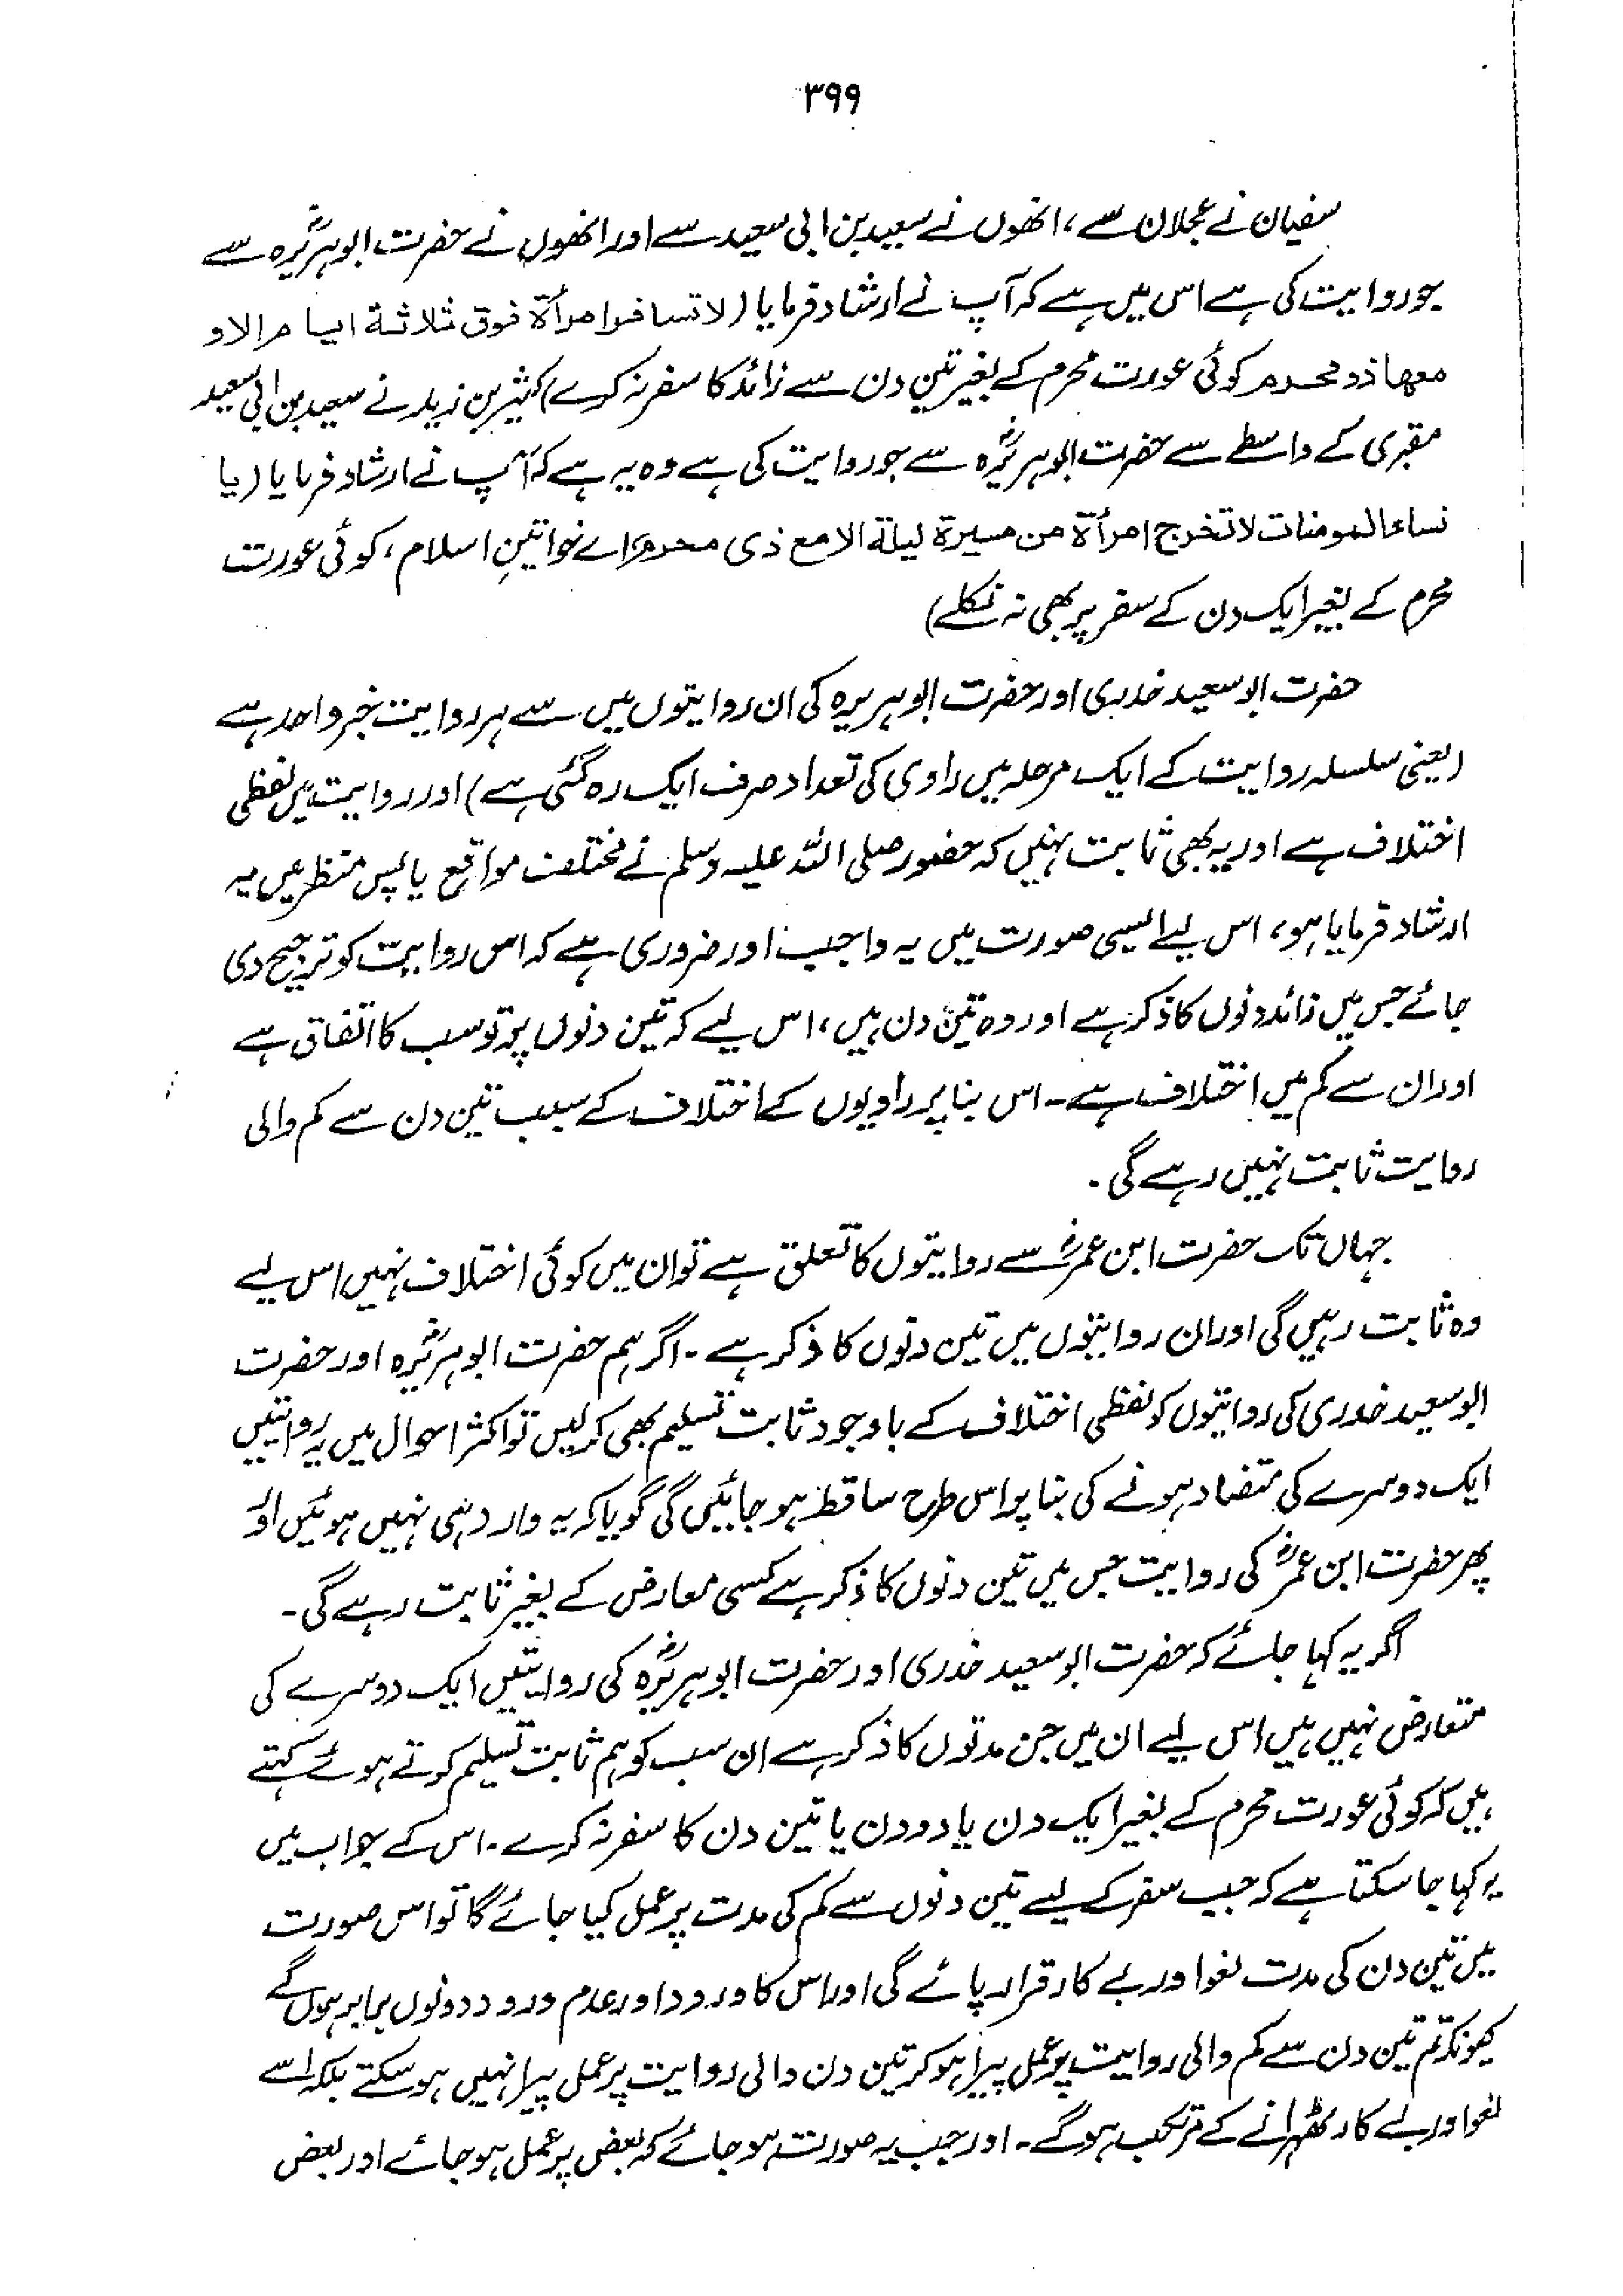 ۳۹۹
سفیان نے عجلان سے، انھوں نے سعید بن ابی سعید سے اور انھوں نے حضرت ابوہریرہؓ سے
جو روایت کی ہے اس میں ہے کہ آپ نے ارشاد فرمایا (لا تسافر امرأة فوق ثلاثة ایام الا و
معها ذو محرم کوئی عورت محرم کے بغیر تین دن سے زائد کا سفر نہ کرے) کثیر بن زید نے سعید بن ابی سعید
مقبری کے واسطے سے حضرت ابوہریرہؓ سے جو روایت کی ہے وہ یہ ہے کہ آپ نے ارشاد فرمایا (یا
نساء المومنات لا تخرج امرأة من مسیرة لیلة الا مع ذی محرم، اے خواتینِ اسلام، کوئی عورت
محرم کے بغیر ایک دن کے سفر پر بھی نہ نکلے)
حضرت ابوسعید خدری اور حضرت ابوہریرہ کی ان روایتوں میں سے ہر روایت خبر واحد ہے
(یعنی سلسلہ روایت کے ایک مرحلہ میں راوی کی تعداد صرف ایک رہ گئی ہے) اور روایت میں لفظی
اختلاف ہے اور یہ بھی ثابت نہیں کہ حضور صلی اللہ علیہ وسلم نے مختلف مواقع یا پس منظر میں یہ
ارشاد فرمایا ہو، اس لیے ایسی صورت میں یہ واجب اور ضروری ہے کہ اس روایت کو ترجیح دی
جائے جس میں زائد دنوں کا ذکر ہے اور وہ تین دن ہیں، اس لیے کہ تین دنوں پر تو سب کا اتفاق ہے
اور ان سے کم میں اختلاف ہے۔ اس بنا پر راویوں کے اختلاف کے سبب تین دن سے کم والی
روایت ثابت نہیں رہے گی۔
جہاں تک حضرت ابن عمرؓ سے روایتوں کا تعلق ہے تو ان میں کوئی اختلاف نہیں اس لیے
وہ ثابت رہیں گی اور ان روایتوں میں تین دنوں کا ذکر ہے۔ اگر ہم حضرت ابوہریرہؓ اور حضرت
ابوسعید خدری کی روایتوں کو لفظی اختلاف کے باوجود ثابت تسلیم بھی کر لیں تو اکثر احوال میں یہ روایتیں
ایک دوسرے کی متضاد ہونے کی بنا پر اس طرح ساقط ہو جائیں گی گویا کہ یہ وارد ہی نہیں ہوئیں اور
پھر حضرت ابن عمرؓ کی روایت جس میں تین دنوں کا ذکر ہے کسی معارض کے بغیر ثابت رہے گی۔
اگر یہ کہا جائے کہ حضرت ابوسعید خدری اور حضرت ابوہریرہؓ کی روایتیں ایک دوسرے کی
متعارض نہیں ہیں اس لیے ان میں جن مدتوں کا ذکر ہے ان سب کو ہم ثابت تسلیم کرتے ہوئے کہتے
ہیں کہ کوئی عورت محرم کے بغیر ایک دن یا دو دن یا تین دن کا سفر نہ کرے۔ اس کے جواب میں
یہ کہا جا سکتا ہے کہ جب سفر کے لیے تین دنوں سے کم کی مدت پر عمل کیا جائے گا تو اس صورت
میں تین دن کی مدت لغو اور بے کار قرار پائے گی اور اس کا ورود اور عدم ورود دونوں برابر ہوں گے
کیونکہ تم تین دن سے کم والی روایت پر عمل پیرا ہو کر تین دن والی روایت پر عمل پیرا نہیں ہو سکتے بلکہ اسے
لغو اور بے کار ٹھہرانے کے مرتکب ہوگے۔ اور جب یہ صورت ہو جائے کہ بعض پر عمل ہو جائے اور بعض